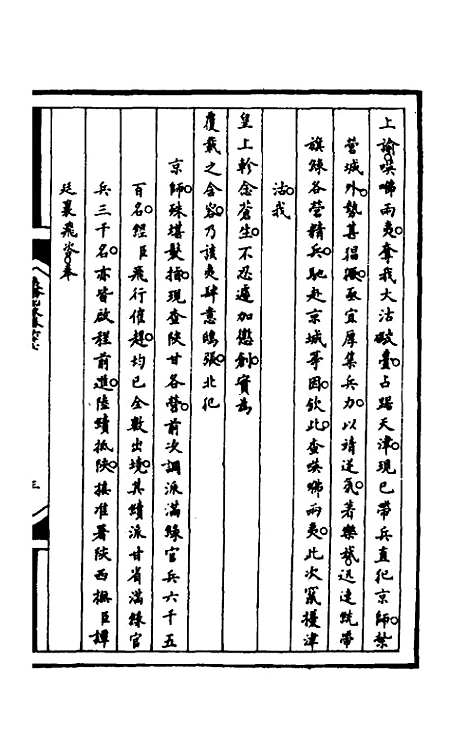 上諭。嘆咈兩夷。奪我大沽礮臺。占踞天津。現已帶兵直犯京師。禁
營城外。勢甚猖獗。亟宜厚集兵力。以靖逆氛。著樂斌。迅速統帶
旗綠各營精兵。馳赴京城等因。欽此。查嘆咈兩夷。此次竄擾津
沽。我
皇上軫念蒼生。不忍遽加懲創。實為
覆載之含容。乃該夷肆意鴟張。北犯
京師。殊堪髮指。現查陝甘各營。前次調派滿綠官兵六千五
百名。經臣飛行催趲。均已全數出境。其續派甘省滿綠官
兵三千名。亦皆啟程前進。陸續抵陝。接准署陝西撫臣譚
廷襄飛咨。奉
三